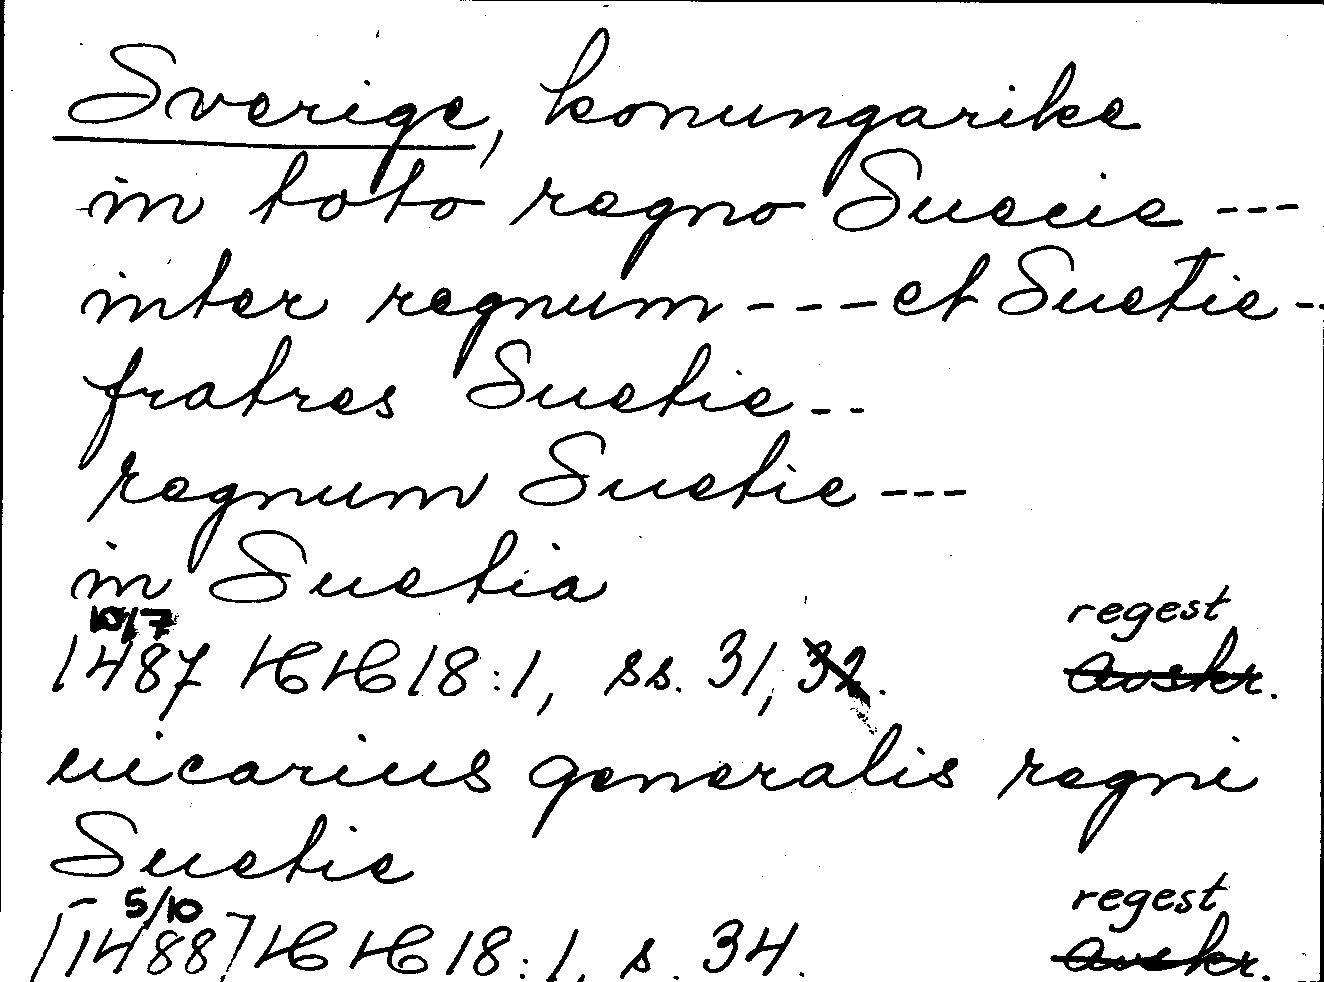 Sverige, konungarike
in toto regno Suecie ---
inter regnum --- et Suetie --
fratres Suetie --
regnum Suetie ---
in Suetia
10/7 regest
1487 HH 18:1, ss. 31, 32. Avskr.
uicarius generalis regni
Suetie
5/10 regest
[1488] HH 18:1, s. 34. Avskr.